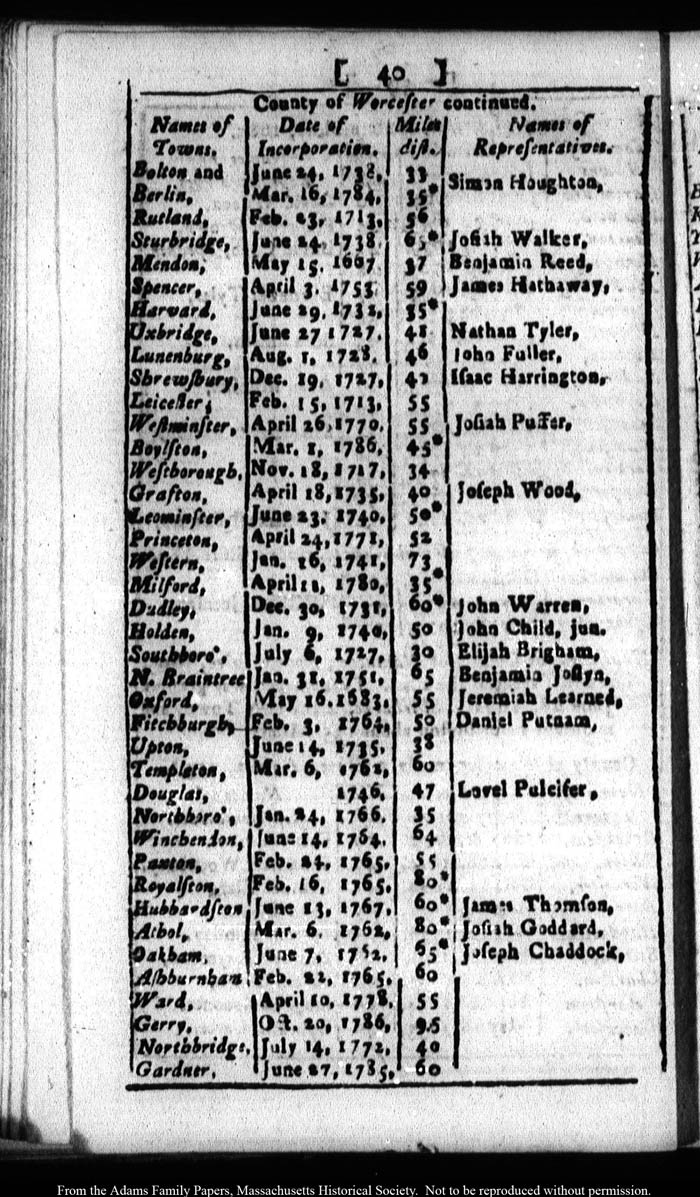 [ 40 ]
County of Worcester continued.
Names of Towns. Date of Incorporation. Miles dist. Names of Representatives.
Bolton and June 24, 1738, 33
Berlin, Mar. 16, 1784, 35* Simon Houghton,
Rutland, Feb. 23, 1713, 56
Sturbridge, June 24, 1738. 65* Josiah Walker,
Mendon, May 15. 1667 37 Benjamin Reed,
Spencer, April 3. 1753 59 James Hathaway,
Harvard, June 29, 1732, 35*
Uxbridge, June 27 1727. 41 Nathan Tyler,
Lunenburg, Aug. 1, 1728. 46 John Fuller,
Shrewsbury, Dec. 19, 1727, 42 Isaac Harrington,
Leicester, Feb. 15, 1713, 55
Westminster, April 26, 1770. 55 Josiah Puffer,
Boylston, Mar. 1, 1786, 45*
Westborough, Nov. 18, 1717, 34
Grafton, April 18, 1735, 40 Joseph Wood,
Leominster, June 23, 1740, 50*
Princeton, April 24, 1771, 52
Western, Jan. 16, 1741, 73
Milford, April 11, 1780, 35*
Dudley, Dec. 30, 1731, 60* John Warren,
Holden, Jan. 9, 1740, 50 John Child, jun.
Southboro', July 6, 1727, 30 Elijah Brigham,
N. Braintree Jan. 31, 1751, 65 Benjamin Joslyn,
Oxford, May 16. 1683, 55 Jeremiah Learned,
Fitchburgh, Feb. 3, 1764, 50 Daniel Putnam,
Upton, June 14, 1735, 38
Templeton, Mar. 6, 1762, 60
Douglas, 1746, 47 Lovel Pulcifer,
Northboro', Jan. 24, 1766. 35
Winchendon, June 14, 1764. 64
Paxton, Feb. 24, 1765, 55
Royalston, Feb. 16, 1765, 80*
Hubbardston June 13, 1767, 60* James Thomson,
Athol, Mar. 6, 1762, 80* Josiah Goddard,
Oakham, June 7, 1762, 65* Joseph Chaddock,
Ashburnham Feb. 22, 1765, 60
Ward, April 10, 1778, 55
Gerry, Oct. 20, 1786, 95
Northbridge, July 14, 1772, 40
Gardner, June 27, 1785, 60
From the Adams Family Papers, Massachusetts Historical Society. Not to be reproduced without permission.